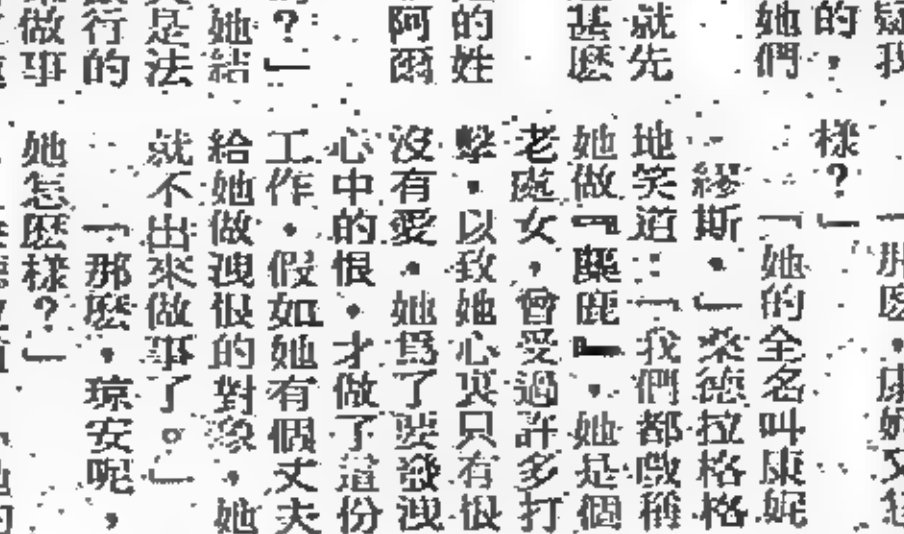 疑我
的,
她們
就先
甚麼
的姓
阿爾
?」
她結
是法
行的
做事
「那麼,康妮又怎
樣?」
「她的全名叫康妮
繆斯。」桑德拉格格
地笑道:「我們都戲稱
她做『麋鹿』,她是個
老處女,曾受過許多打
擊,以致她心裏只有恨
沒有愛。她爲了要發洩
心中的恨,才做了這份
工作。假如她有個丈夫
給她做洩恨的對象,她
就不出來做事了。」
「那麼,琼安呢,
她怎麼樣?」